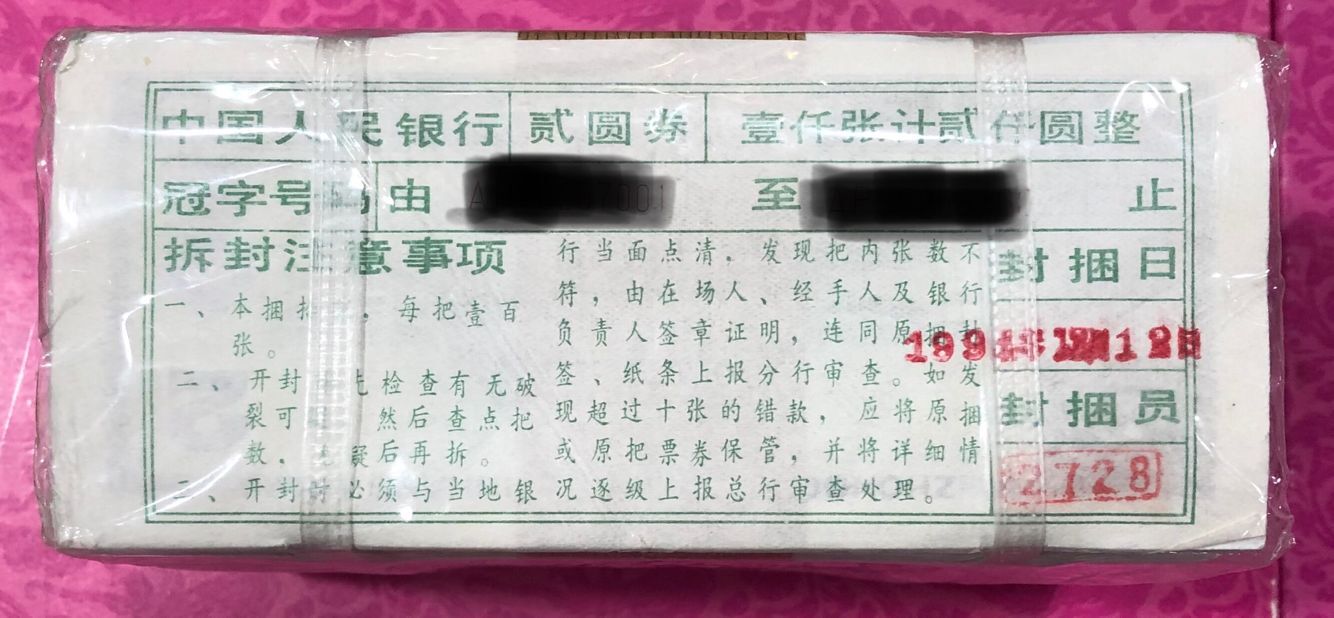 中国人民银行 贰圆券 壹仟张计贰仟圆整
冠字号码由 7001 至 止
拆封注意事项
一、本捆拾，每把壹百
张。
二、开封 先检查有无破
裂可 然后查点把
数， 疑后再拆。
三、开封时必须与当地银
行当面点清，发现把内张数不
符，由在场人、经手人及银行
负责人签章证明，连同原捆封
签、纸条上报分行审查。如发
现超过十张的错款，应将原捆
或原把票券保管，并将详细情
况逐级上报总行审查处理。
封捆日
封捆员
2728